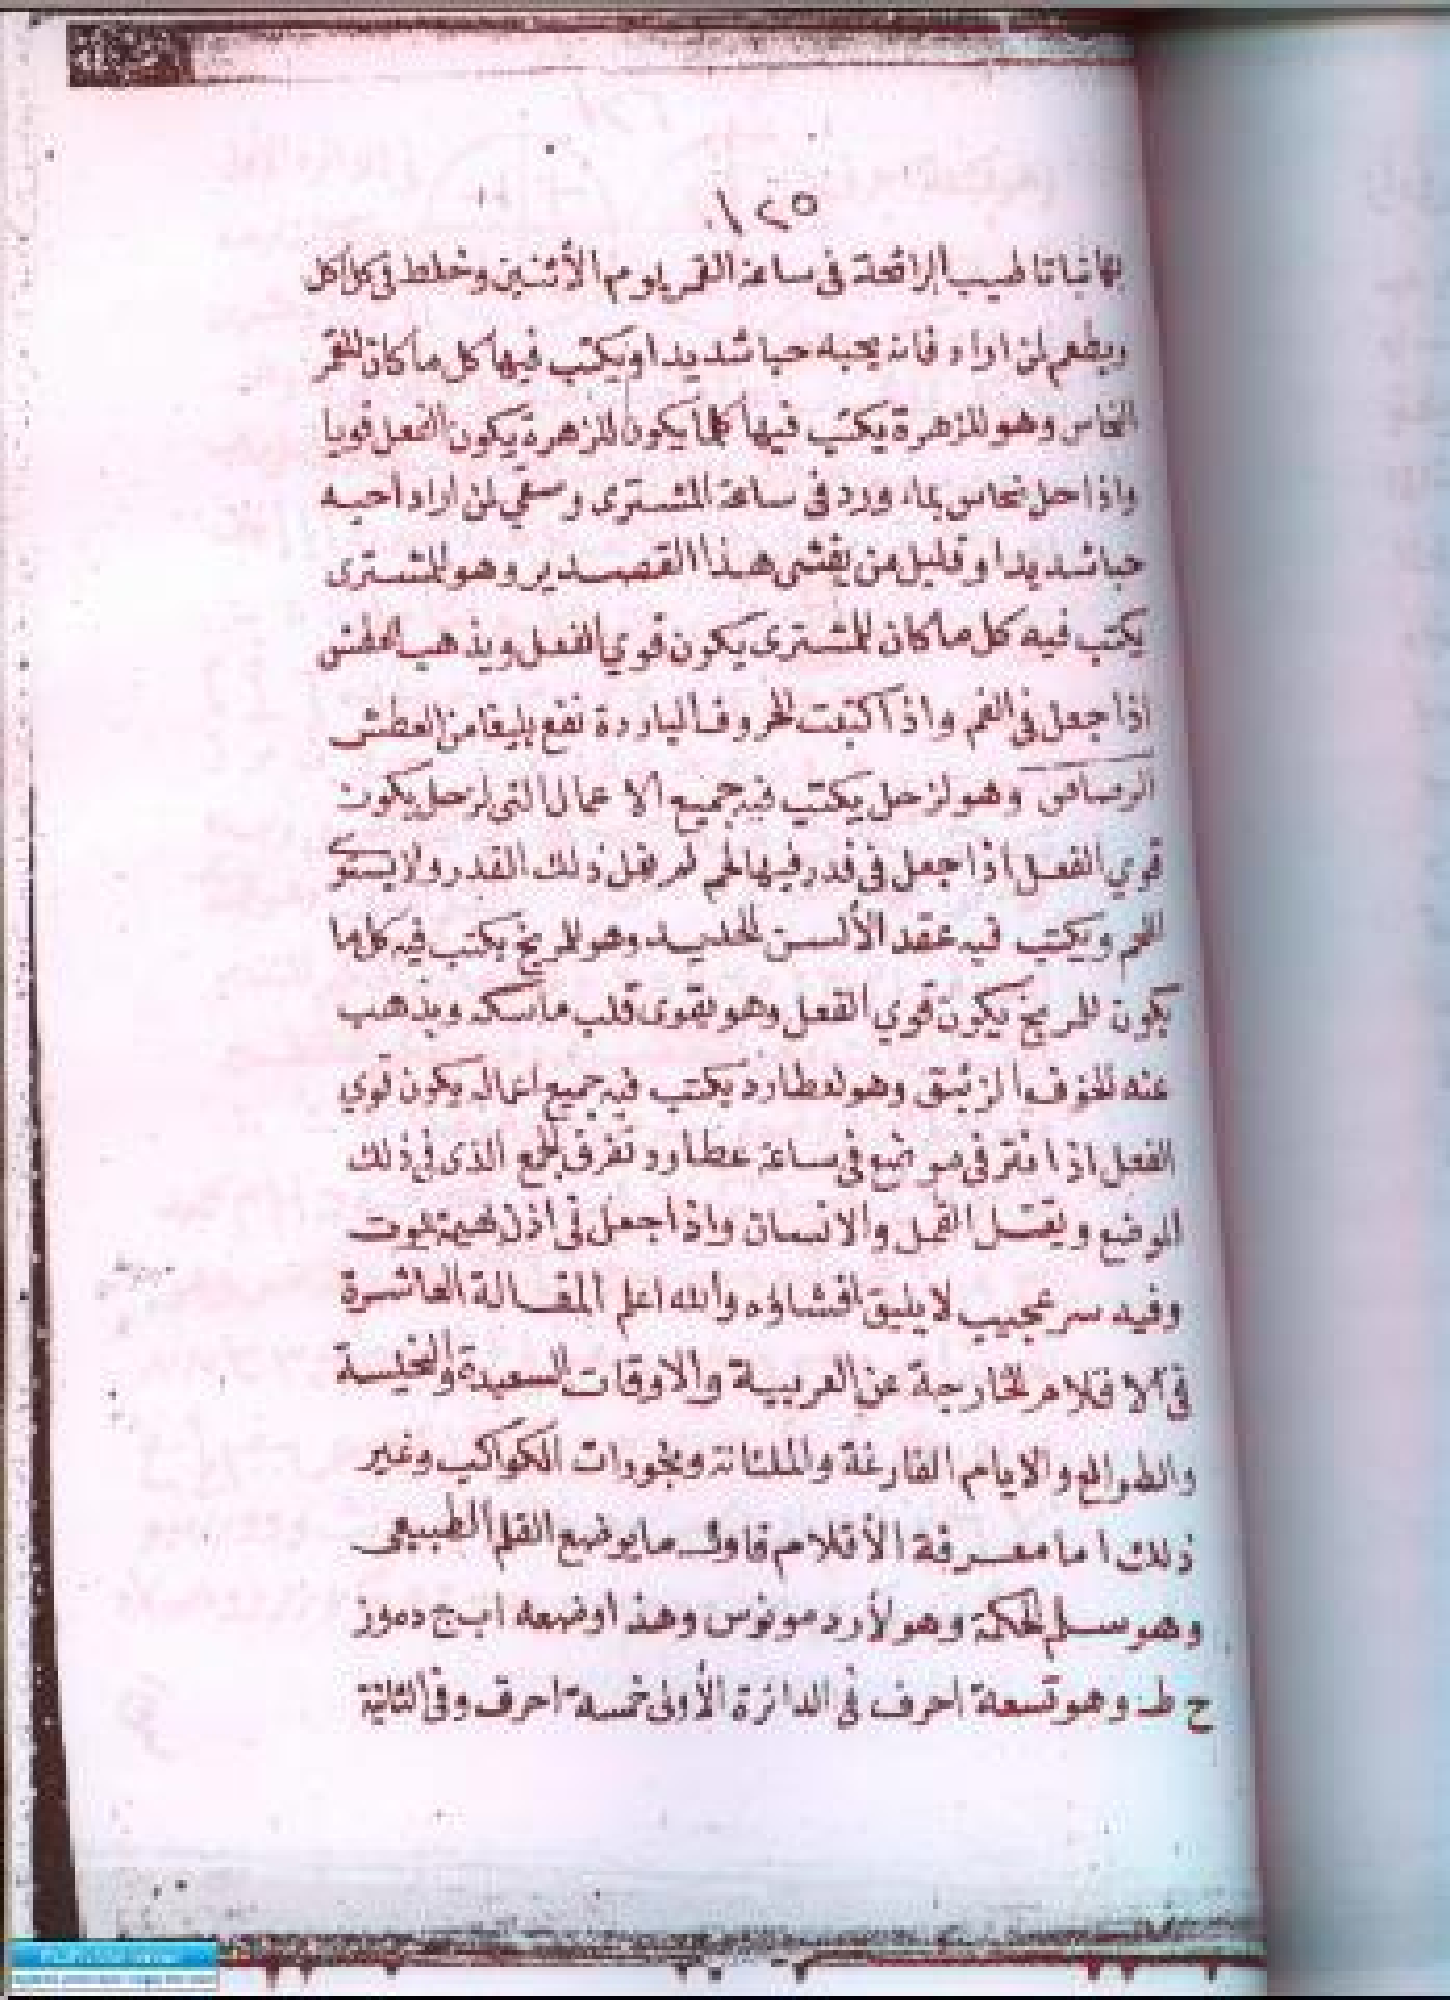 ١٢٥
بها نباتا طيب الرائحة فى ساعة القمر يوم الأثنين وخلط فى كل اكل
ويطعم لمن اراد فانه يحبه حبا شديدا ويكتب فيها كل ما كان للقمر
النحاس وهو للزهرة يكتب فيها كلما يكون للزهرة يكون الفعل قويا
واذا حل نحاس بماء ورد فى ساعة المشترى وسقي لمن اراد احبه
حبا شديدا وقليل من يفشى هذا القصدير وهو للمشترى
يكتب فيه كل ما كان للمشترى يكون قوي الفعل ويذهب العطش
اذا جعل فى الفم واذا كتبت الحروف الباردة نفع بليغا من العطش
الرصاص وهو لزحل يكتب فيه جميع الاعمال التى لزحل يكون
قوي الفعل اذا جعل فى قدر فيها لحم لم يغل ذلك القدر ولا يستو
اللحم ويكتب فيه عقد الألسن الحديد وهو للمريخ يكتب فيه كل ما
يكون للمريخ يكون قوي الفعل وهو يقوى قلب ماسكه ويذهب
عنه الخوف الزئبق وهو لعطارد يكتب فيه جميع اعماله يكون قوي
الفعل اذا فى موضع فى ساعة عطارد تفرق الجمع الذى فى ذلك
الموضع ويقتل القمل والانسان واذا جعل فى اذن بهيمة تموت
وفيه سر عجيب لا يليق افشاؤه والله اعلم المقالة العاشرة
فى الاقلام الخارجة عن العربية والاوقات السعيدة والنحيسة
والطوالع والايام الفارغة والملئانة وبخورات الكواكب وغير
ذلك اما معرفة الأقلام فاول ما يوضع القلم الطبيعى
وهو سلم الحكمة وهو وهذا وضعه ا ب ج د ه و ز
ح ط وهو تسعة احرف فى الدائرة الأولى خمسة احرف وفى الثانية